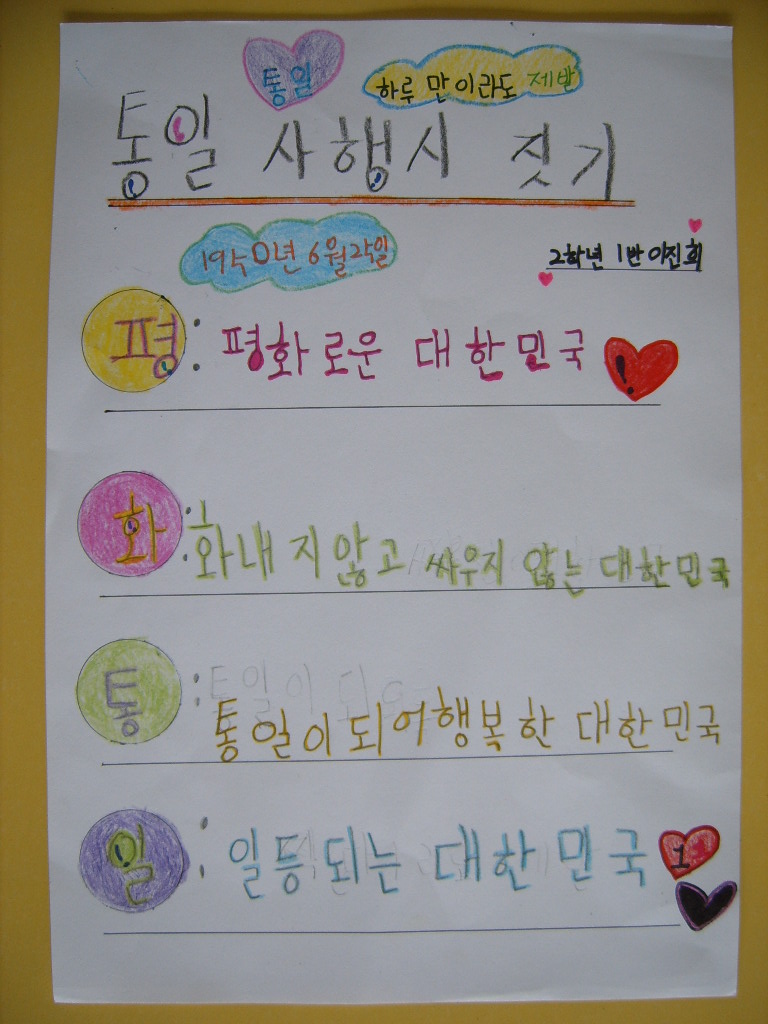 통일
하루 만이라도 제발
통일 사행시 짓기
1950년 6월 25일
2학년 1반 이진희
평 : 평화로운 대한민국 !
화 : 화내지않고 싸우지 않는 대한민국
통 : 통일이되어행복한 대한민국
일 : 일등되는 대한민국 1